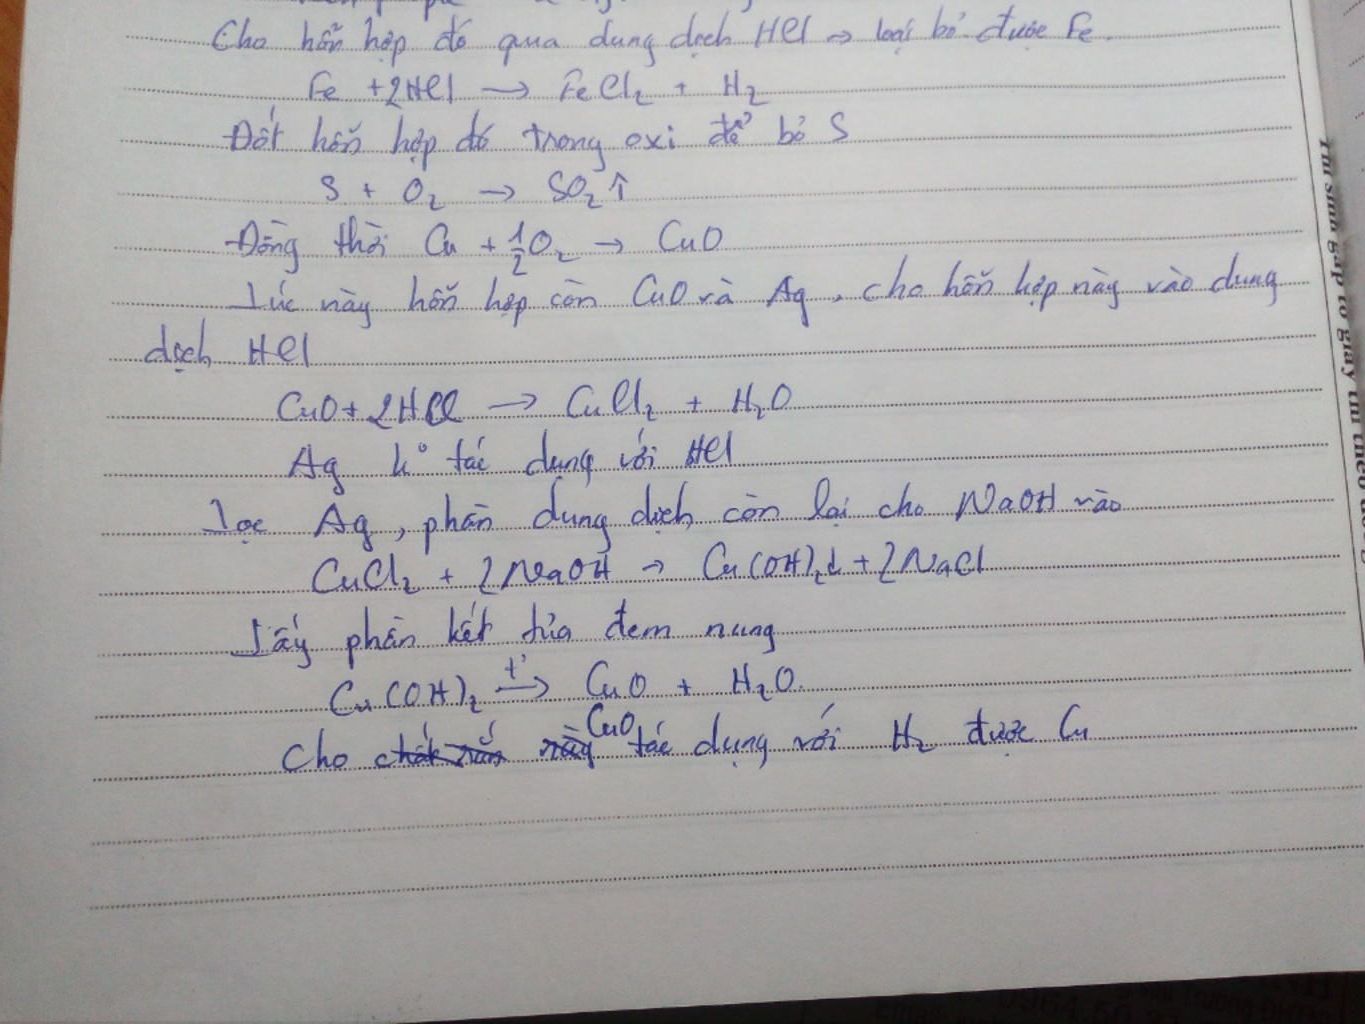 Cho hỗn hợp đó qua dung dịch HCl → loại bỏ được Fe.
Fe + 2HCl → FeCl₂ + H₂
Đốt hỗn hợp đó trong oxi để bỏ S
S + O₂ → SO₂ ↑
Đồng thời Cu + 1/2 O₂ → CuO
Lúc này hỗn hợp còn CuO và Ag, cho hỗn hợp này vào dung
dịch HCl
CuO + 2HCl → CuCl₂ + H₂O
Ag k° tác dụng với HCl
Lọc Ag, phần dung dịch còn lại cho NaOH vào
CuCl₂ + 2NaOH → Cu(OH)₂↓ + 2NaCl
Lấy phần kết tủa đem nung
Cu(OH)₂ t° → CuO + H₂O.
Cho CuO tác dụng với H₂ được Cu
Thí sinh gấp tờ giấy thi theo